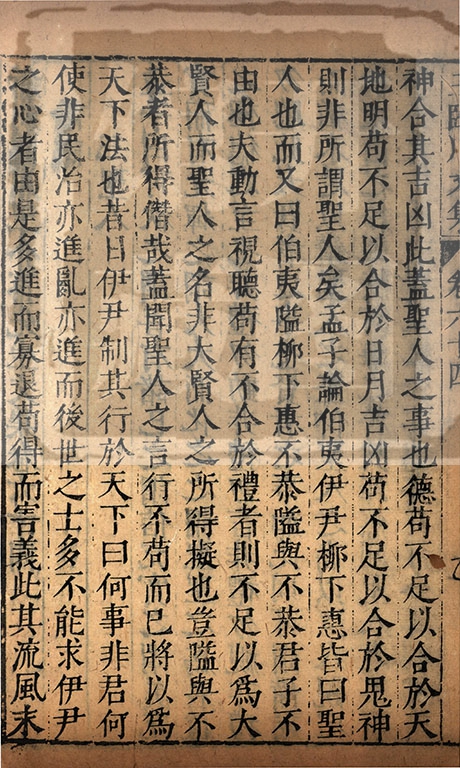 王臨川文集 卷六十四
神合其吉凶此蓋聖人之事也德苟不足以合於天
地明苟不足以合於日月吉凶苟不足以合於鬼神
則非所謂聖人矣孟子論伯夷伊尹柳下惠皆曰聖
人也而又曰伯夷隘柳下惠不恭隘與不恭君子不
由也夫動言視聽苟有不合於禮者則不足以爲大
賢人而聖人之名非大賢人之所得擬也豈隘與不
恭者所得僭哉蓋聞聖人之言行不苟而已將以爲
天下法也昔日伊尹制其行於天下曰何事非君何
使非民治亦進亂亦進而後世之士多不能求伊尹
之心者由是多進而寡退苟得而害義此其流風末